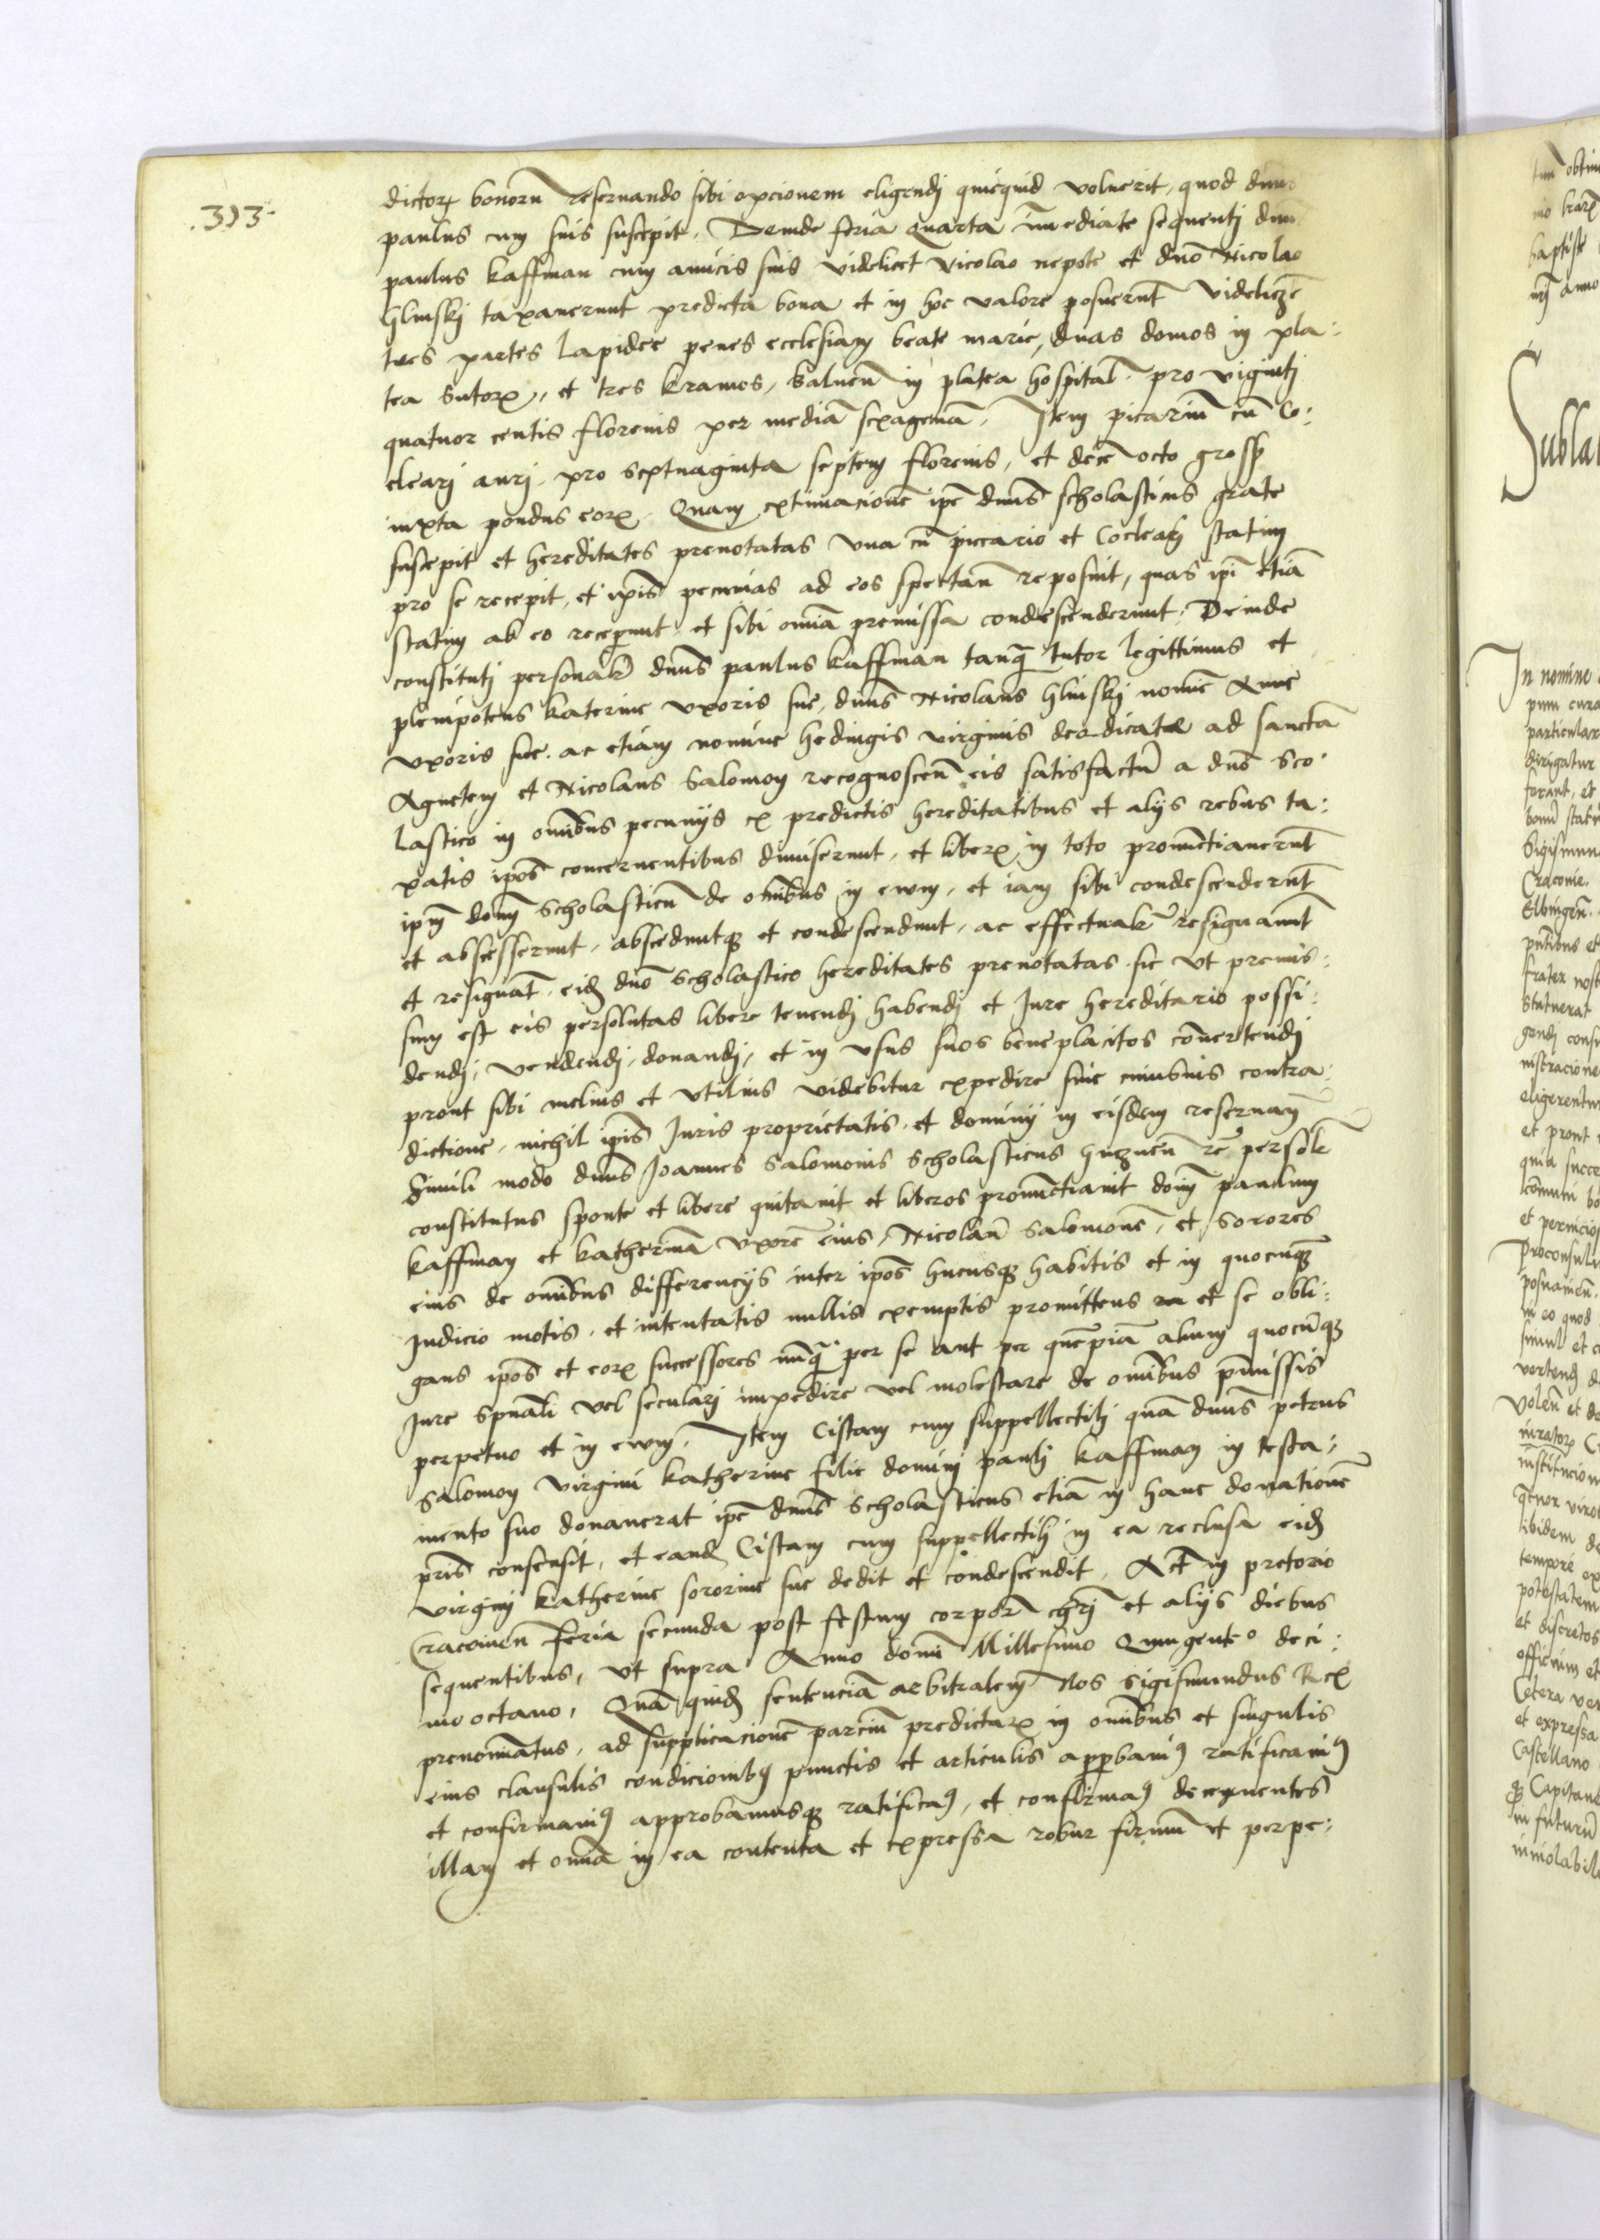 .393.
dictorꝝ bonorū reservando sibi opcionem eligendj quicquid voluerit, quod dnus
paulus cum suis suscepit. Deinde feria quarta immediate sequentj dnus
paulus kaffman cum amicis suis videlicet Nicolao nepote et dno Nicolao
Glinskj taxaverunt predicta bona et in hoc valore posuerunt videliczet
tres partes lapidee penes ecclesiam beate marie, duas domos in pla:
tea sutorꝝ, et tres kramos, balneū in platea hospital. pro vigintj
quatuor centis florenis per mediā sexagenā. Item picariū cū co:
clearj aurj. pro septuaginta septem florenis, et decē octo gross
iuxta pondus eorꝝ. Quam extimacionē ipē dnus scholasticus grate
suscepit et hereditates prenotatas una cū piccario et coclearj statim
pro se recepit, et ipis pecunias ad eos spectan reposuit, quas ipi etiā
statim ab eo receperunt. et sibi omīa premissa condescenderunt. Deinde
constitutj personalr dnus paulus kaffman tanq̄ tutor legittimus et
plenipotens katerine uxoris sue, dnus Nicolaus Glinskj nomīe Anne
uxoris sue. ac etiam nomine hedvigis virginis deodicate ad sanctā
Agnetem et Nicolaus Salomon recognoscen eis satisfactū a dno sco:
lastico in omībus pecunijs ex predictis hereditatibus et alijs rebus ta:
xatis ipos concernentibus dimiserunt, et liberꝝ in toto pronunctiaverunt
ipm domm scholasticū de omībus in evum, et iam sibi condescenderunt
et abscesserunt, abscedmutqꝫ et condescendunt, ac effectualr resignaverunt
et resignāt eidē dno scholastico hereditates prenotatas sic ut premis:
sum est eis persolutas libere tenendj habendj et Iure hereditario possi:
dendj, vendendj, donandj, et in usus suos beneplacitos convertendj
prout sibi melius et utilius videbitur expedire sine cuiusvis contra:
dictione. nichil ipis Iuris proprietatis. et dominij in eisdem reservan
Simili modo dnus Ioannes Salomonis scholasticus persolr
constitutus sponte et libere quitavit et liberos pronunctiavit domm paulum
kaffman et katherinā uxorē eius, Nicolaū Salomonē, et sorores
eius de omībus differencijs inter ipos hucusqꝫ habitis et in quocumqꝫ
Iudicio motis, et intentatis nullis exemptis promittens et se obli:
gans ipos et eorꝝ successores nunq̄ per se aut per quempiā alium quocūqꝫ
Iure spūali vel secularj impedire vel molestare de omībus pmissis
perpetuo et in evum. Item Cistam cum suppellectilj quā dnus petrus
Salomon virgini katherine filie domini paulj kaffman in testa:
mento suo donaverat ipē dnus scholasticus etiā in hanc donationē
pris consensit, et eandē Cistam cum suppellectilj in ea reclusa eidē
virginj katherine sororine sue dedit et condescendit. Act in pretorio
Cracovien feria secunda post festum corporis chrj et alijs diebus
sequentibus, ut supra Anno domī Millesimo Quingenteo deci:
mo octavo, Quā quidē sentenciā arbitralem Nos Sigismundus Rex
prenominatus, ad supplicacionē parciū predictarꝝ in omībus et singulis
eius clausulis condicionibꝫ punctis et articulis approbavimꝰ ratificavimꝰ
et confirmavimꝰ approbamusqꝫ ratificamꝰ, et confirmamꝰ decernentes
illam et omīa in ea contenta et expressa robur firmū et perpe:
Subla
In nomine
particular
dirigatur
Sigismun
Cracovie.
Elbingen.
frater nost
statuerat
gendj consu
nistracione
eligerentur
et prout
quia succe
et pernicios
Proconsuli
in eo quod
simul et
Volen et de
institucion
ibidem de
tempore ex
potestatem
et discretos
officium et
Cetera ver
et expressa
Castellano
qꝫ Capitane
in futurū
inviolabile